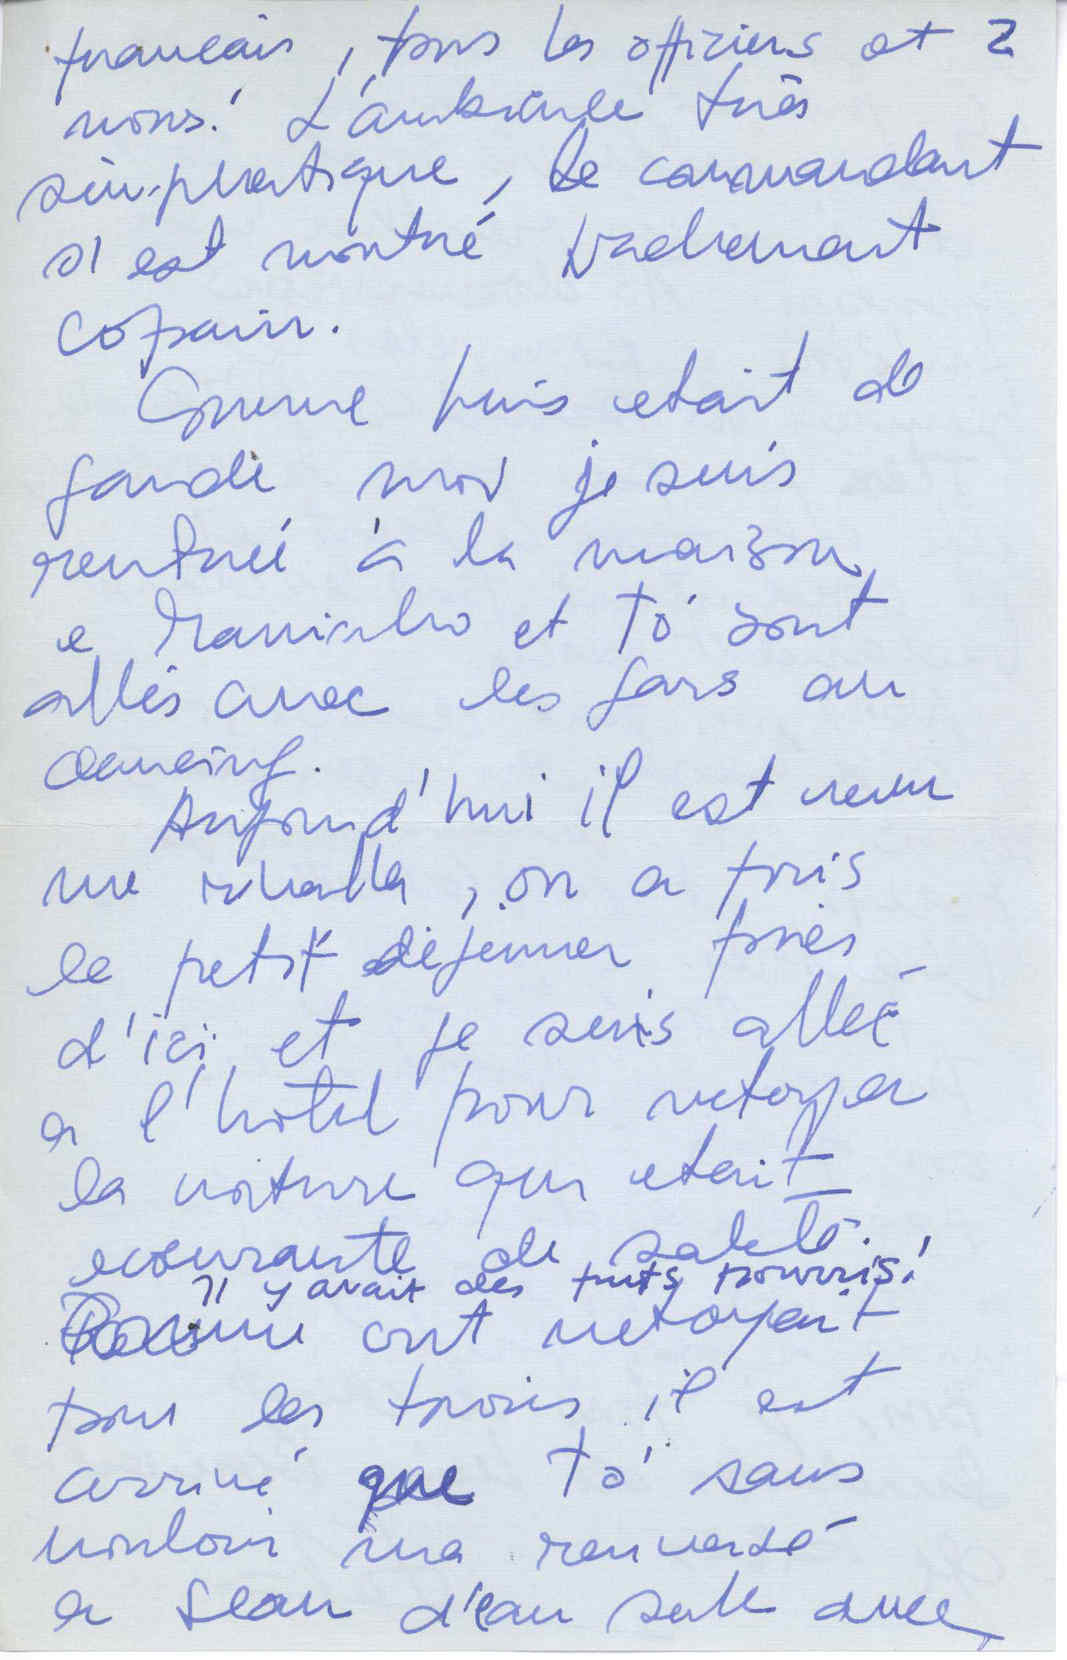 français, tous les officiers et 2
nous! L'ambiance très
simphatique, le commandant
s'est montré vachement
copain.
Comme Luis etait de
garde moi je suis
rentrée à la maison,
e Maninho et Tó sont
allés avec les gars au
dancing.
Aujourd'hui il est venu
me rchalla, on a pris
le petit déjeuner près
d'ici et je suis alleé
a l'hôtel pour netoyer
la voiture qui etait
ecoeurante de saleté.
Il y avait des fruits pourris!
Comme ont netoyait
tous les trois il est
arrivé que Tó sans
vouloir ma renversé
le seau d'eau sale avec